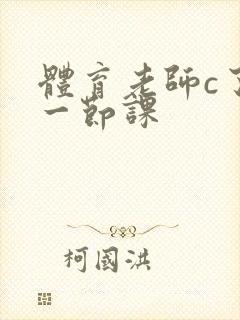 體育老師c了
一節課
柯國洪